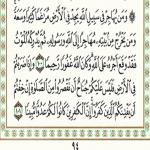 ۞ وَمَن يُهَاجِرْ فِي سَبِيلِ ٱللَّهِ يَجِدْ فِي ٱلْأَرْضِ مُرَٰغَمًا كَثِيرًا وَسَعَةً
وَمَن يَخْرُجْ مِنۢ بَيْتِهِۦ مُهَاجِرًا إِلَى ٱللَّهِ وَرَسُولِهِۦ ثُمَّ يُدْرِكْهُ ٱلْمَوْتُ
فَقَدْ وَقَعَ أَجْرُهُۥ عَلَى ٱللَّهِ وَكَانَ ٱللَّهُ غَفُورًا رَّحِيمًا ١٠٠ وَإِذَا ضَرَبْتُمْ
فِي ٱلْأَرْضِ فَلَيْسَ عَلَيْكُمْ جُنَاحٌ أَن تَقْصُرُوا۟ مِنَ ٱلصَّلَوٰةِ إِنْ خِفْتُمْ
أَن يَفْتِنَكُمُ ٱلَّذِينَ كَفَرُوٓا۟ إِنَّ ٱلْكَٰفِرِينَ كَانُوا۟ لَكُمْ عَدُوًّا مُّبِينًا ١٠١
٩٤